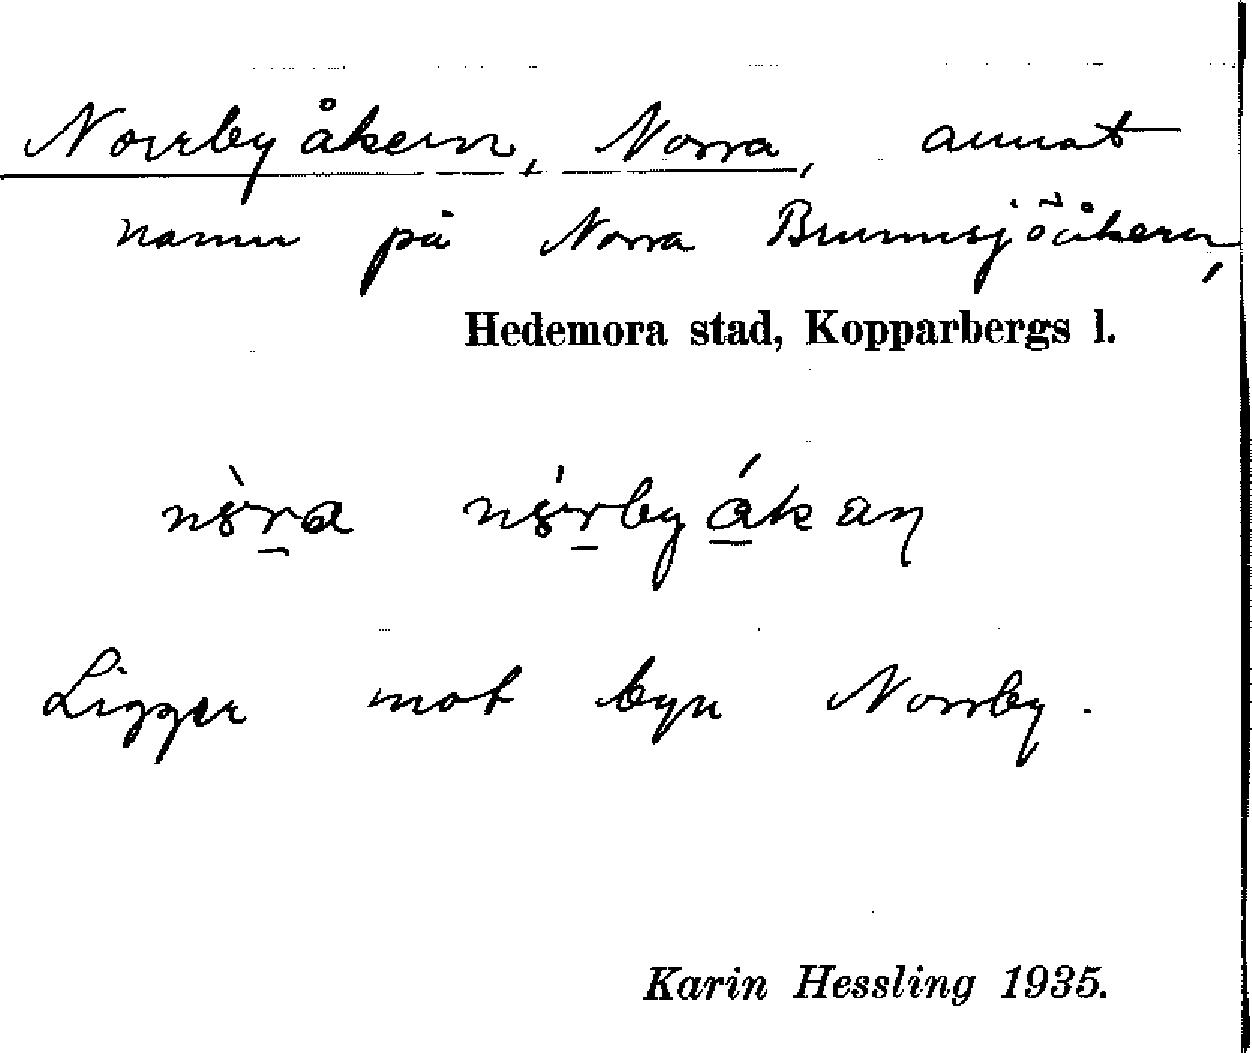 Norrbyåkern, Norra, annat
namn på Norra Brunnsjöåkern,
Hedemora stad, Kopparbergs l.
Ligger mot byn Norrby.
Karin Hessling 1935.